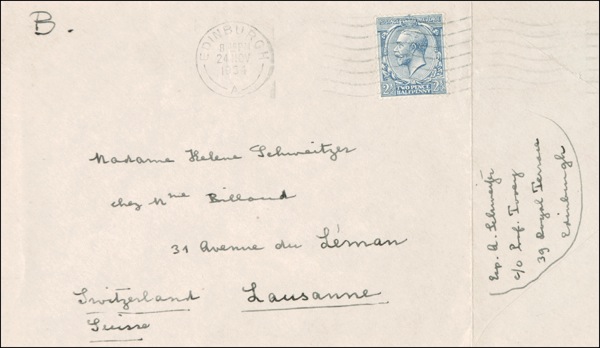 B.
EDINBURGH
24 NOV
1934
A
2½ 2½
TWO PENCE
HALFPENNY
Madame Helene Schweitzer
chez Mme Billaud
31 Avenue du Léman
Switzerland Lausanne
Suisse
Exp. A. Schweitzer
c/o Prof. Tovey
39 Royal Terrace
Edinburgh